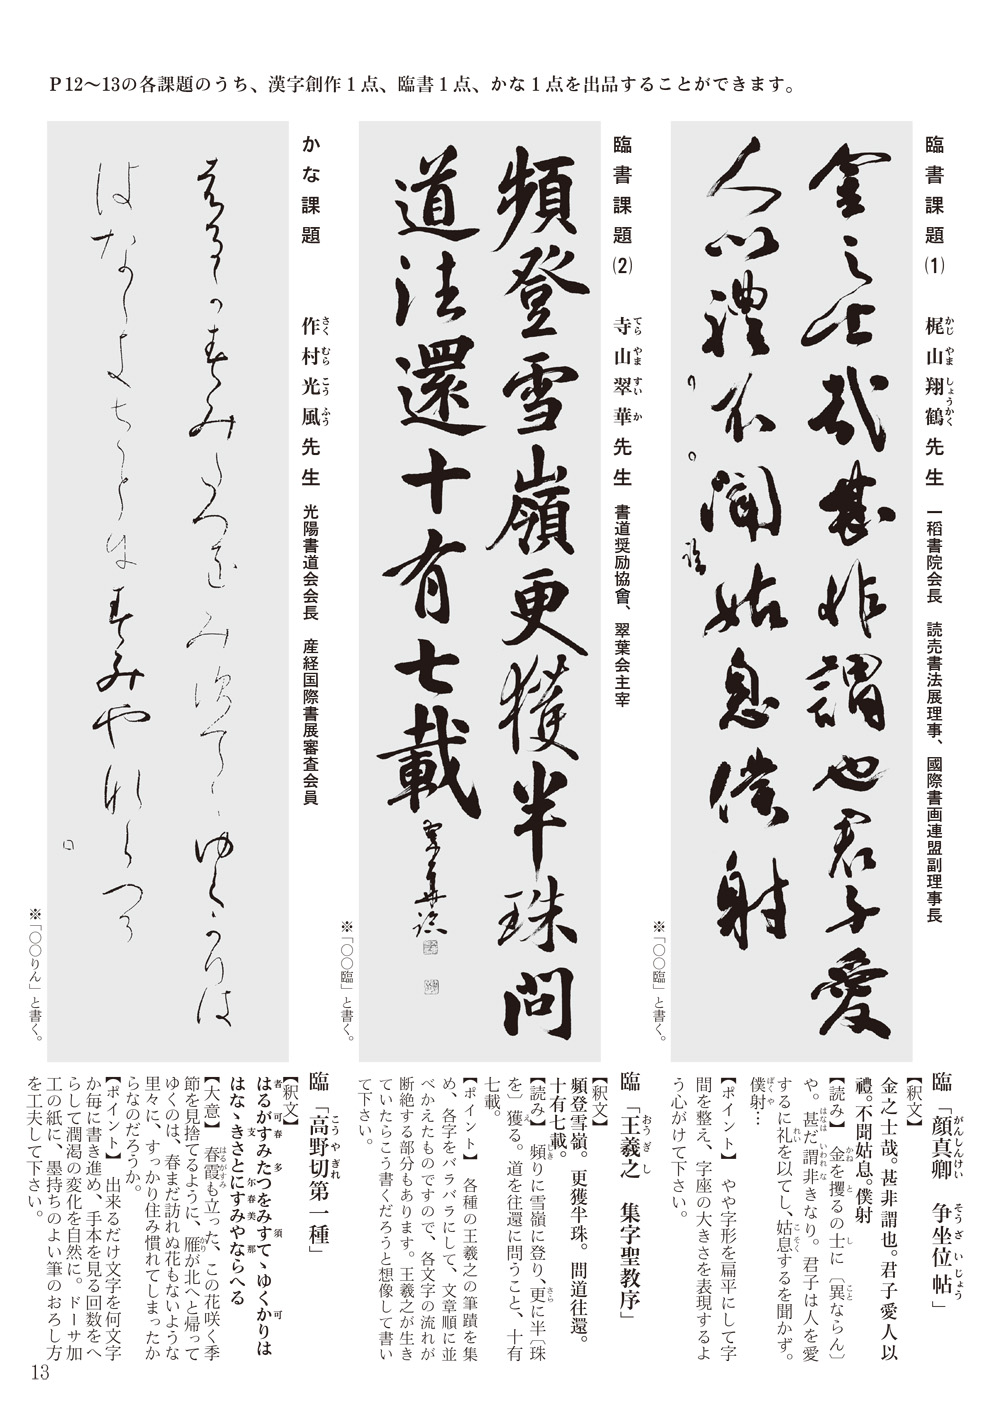 P12〜13の各課題のうち、漢字創作1点、臨書1点、かな1点を出品することができます。
臨書課題(1) 梶山翔鶴先生 一稲書院会長 読売書法展理事、國際書画連盟副理事長
かじ やま しょうかく
金之士哉甚非謂也君子愛
人以禮不聞姑息僕射
臨
※「〇〇臨」と書く。
臨「顔真卿 争坐位帖」
がんしんけい そうざいじょう
【釈文】
金之士哉。甚非謂也。君子愛人以
禮。不聞姑息。僕射
【読み】 金を攫るの士に〔異ならん〕
や。甚だ謂非きなり。君子は人を愛
するに礼を以てし、姑息するを聞かず。
僕射…
【ポイント】 やや字形を扁平にして字
間を整え、字座の大きさを表現するよ
う心がけて下さい。
臨書課題(2) 寺山翠華先生 書道奨励協會、翠葉会主宰
てら やま すい か
頻登雪嶺更獲半珠問
道法還十有七載
翠華臨
※「〇〇臨」と書く。
臨「王羲之 集字聖教序」
おうぎし
【釈文】
頻登雪嶺。更獲半珠。問道往還。
十有七載。
【読み】 頻りに雪嶺に登り、更に半〔珠
を〕獲る。道を往還に問うこと、十有
七載。
【ポイント】 各種の王羲之の筆蹟を集
め、各字をバラバラにして、文章順に並
べかえたものですので、各文字の流れが
断絶する部分もあります。王羲之が生き
ていたらこう書くだろうと想像して書い
て下さい。
かな課題 作村光風先生 光陽書道会会長 産経国際書展審査会員
さく むら こう ふう
※「〇〇りん」と書く。
臨「高野切第一種」
こうやぎれ
【釈文】
はるがすみたつをみすてゝゆくかりは
者 可 春 多 須 可
はなゝきさとにすみやならへる
支 尓 春 美 那
【大意】 春霞も立った、この花咲く季
節を見捨てるように、雁が北へと帰って
ゆくのは、春まだ訪れぬ花もないような
里々に、すっかり住み慣れてしまったか
らなのだろうか。
【ポイント】 出来るだけ文字を何文字
か毎に書き進め、手本を見る回数をへ
らして潤渇の変化を自然に。ドーサ加
工の紙に、墨持ちのよい筆のおろし方
を工夫して下さい。
13